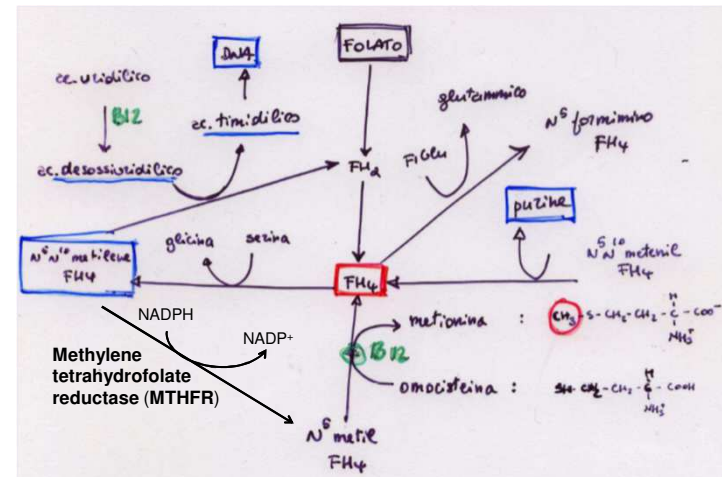 DNA
FOLATO
ac. uridilico
B12
ac. timidilico
ac. desossiuridilico
glutammico
FiGlu
N⁵ formimino
FH4
FH2
purine
N⁵N¹⁰ metilene
FH4
glicina
serina
FH4
N⁵N¹⁰ metenil
FH4
NADPH
NADP+
Methylene
tetrahydrofolate
reductase (MTHFR)
B12
metionina : CH3-S-CH2-CH2-C-COO⁻
H
NH3⁺
omocisteina : SH-CH2-CH2-C-COOH
H
NH3⁺
N⁵ metil
FH4